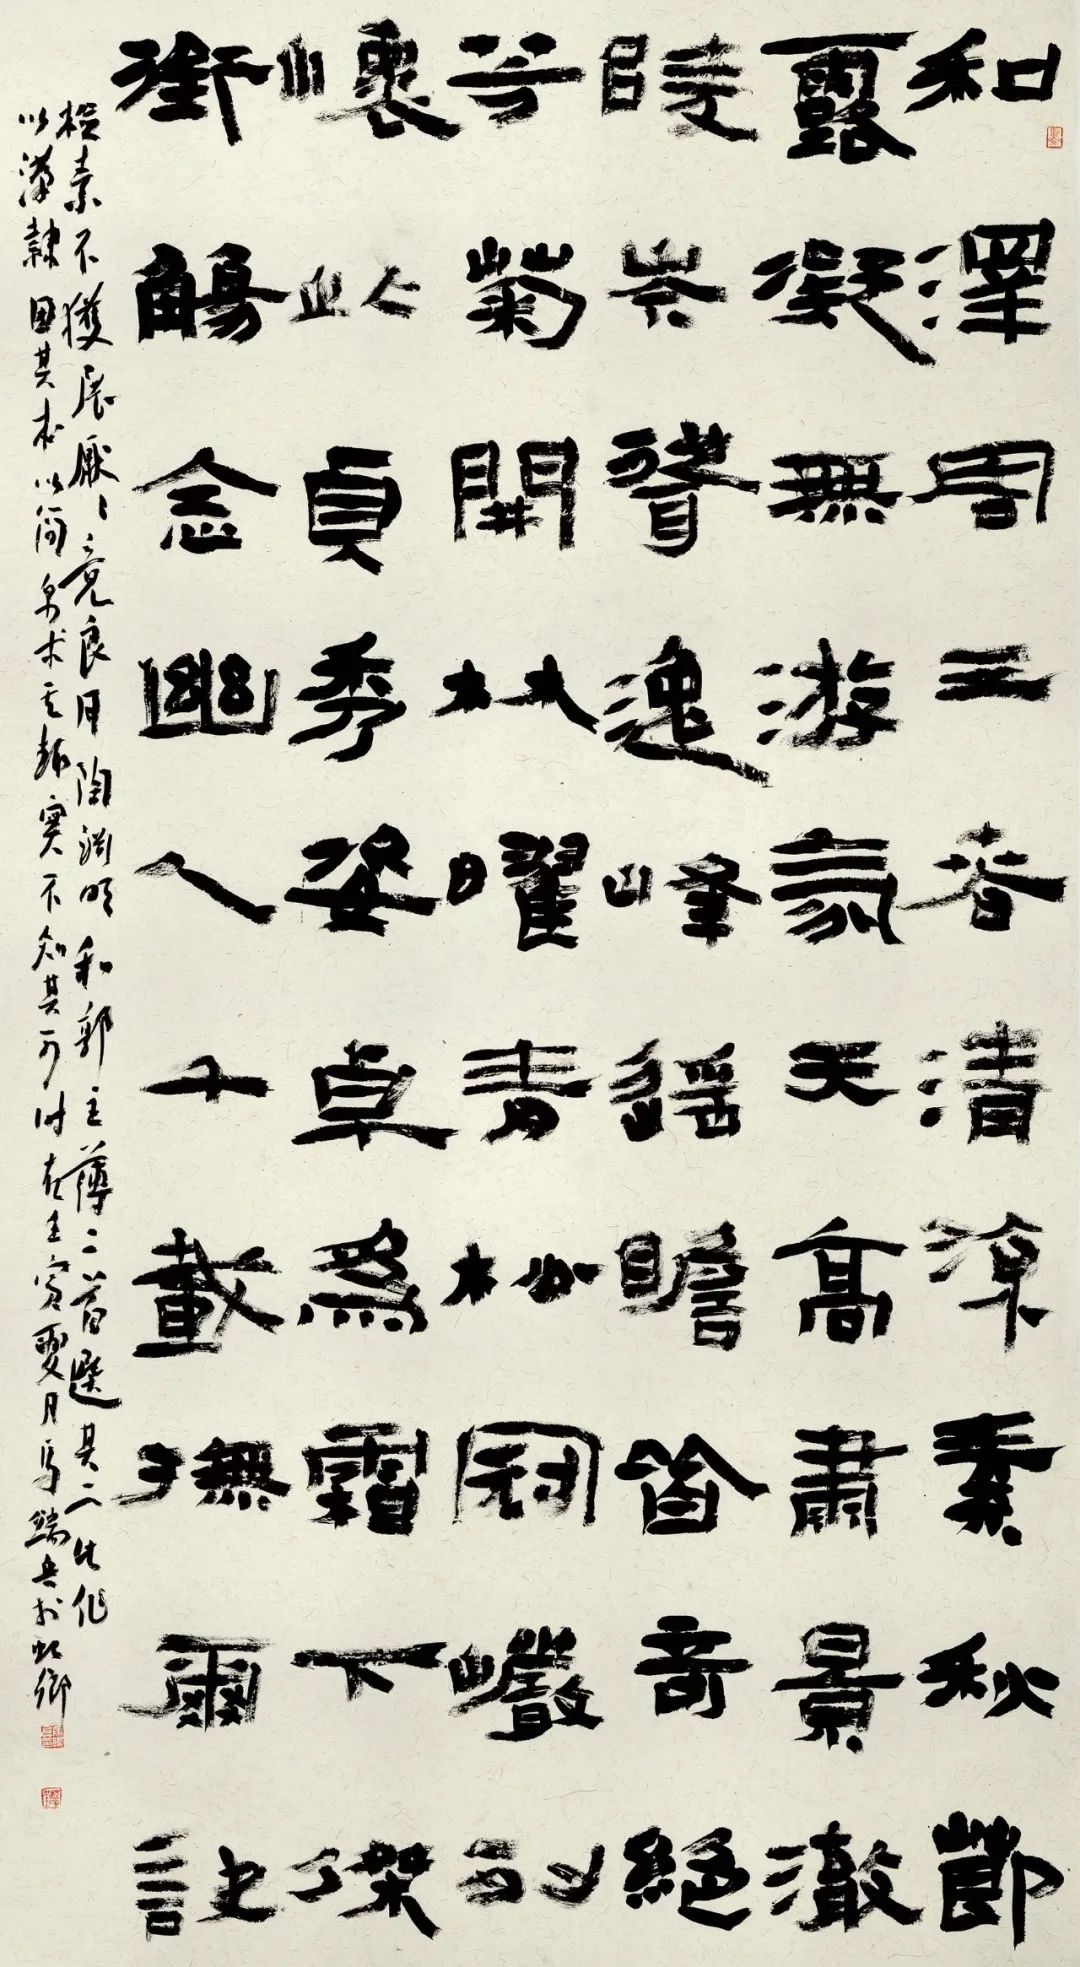 和澤周三春清涼素秋節
露凝無游氛天高肅景澈
陵岑聳逸峰遙瞻皆奇絕
芳菊開林曜青松冠巖列
懷此貞秀姿卓爲霜下傑
銜觴念幽人千載撫爾訣
檢素不獲展厭〻竟良月陶淵明和郭主薄二首選其二此作
以漢隸固其本以簡帛求其趣實不知其可壬寅夏月馬端兵於虹鄉